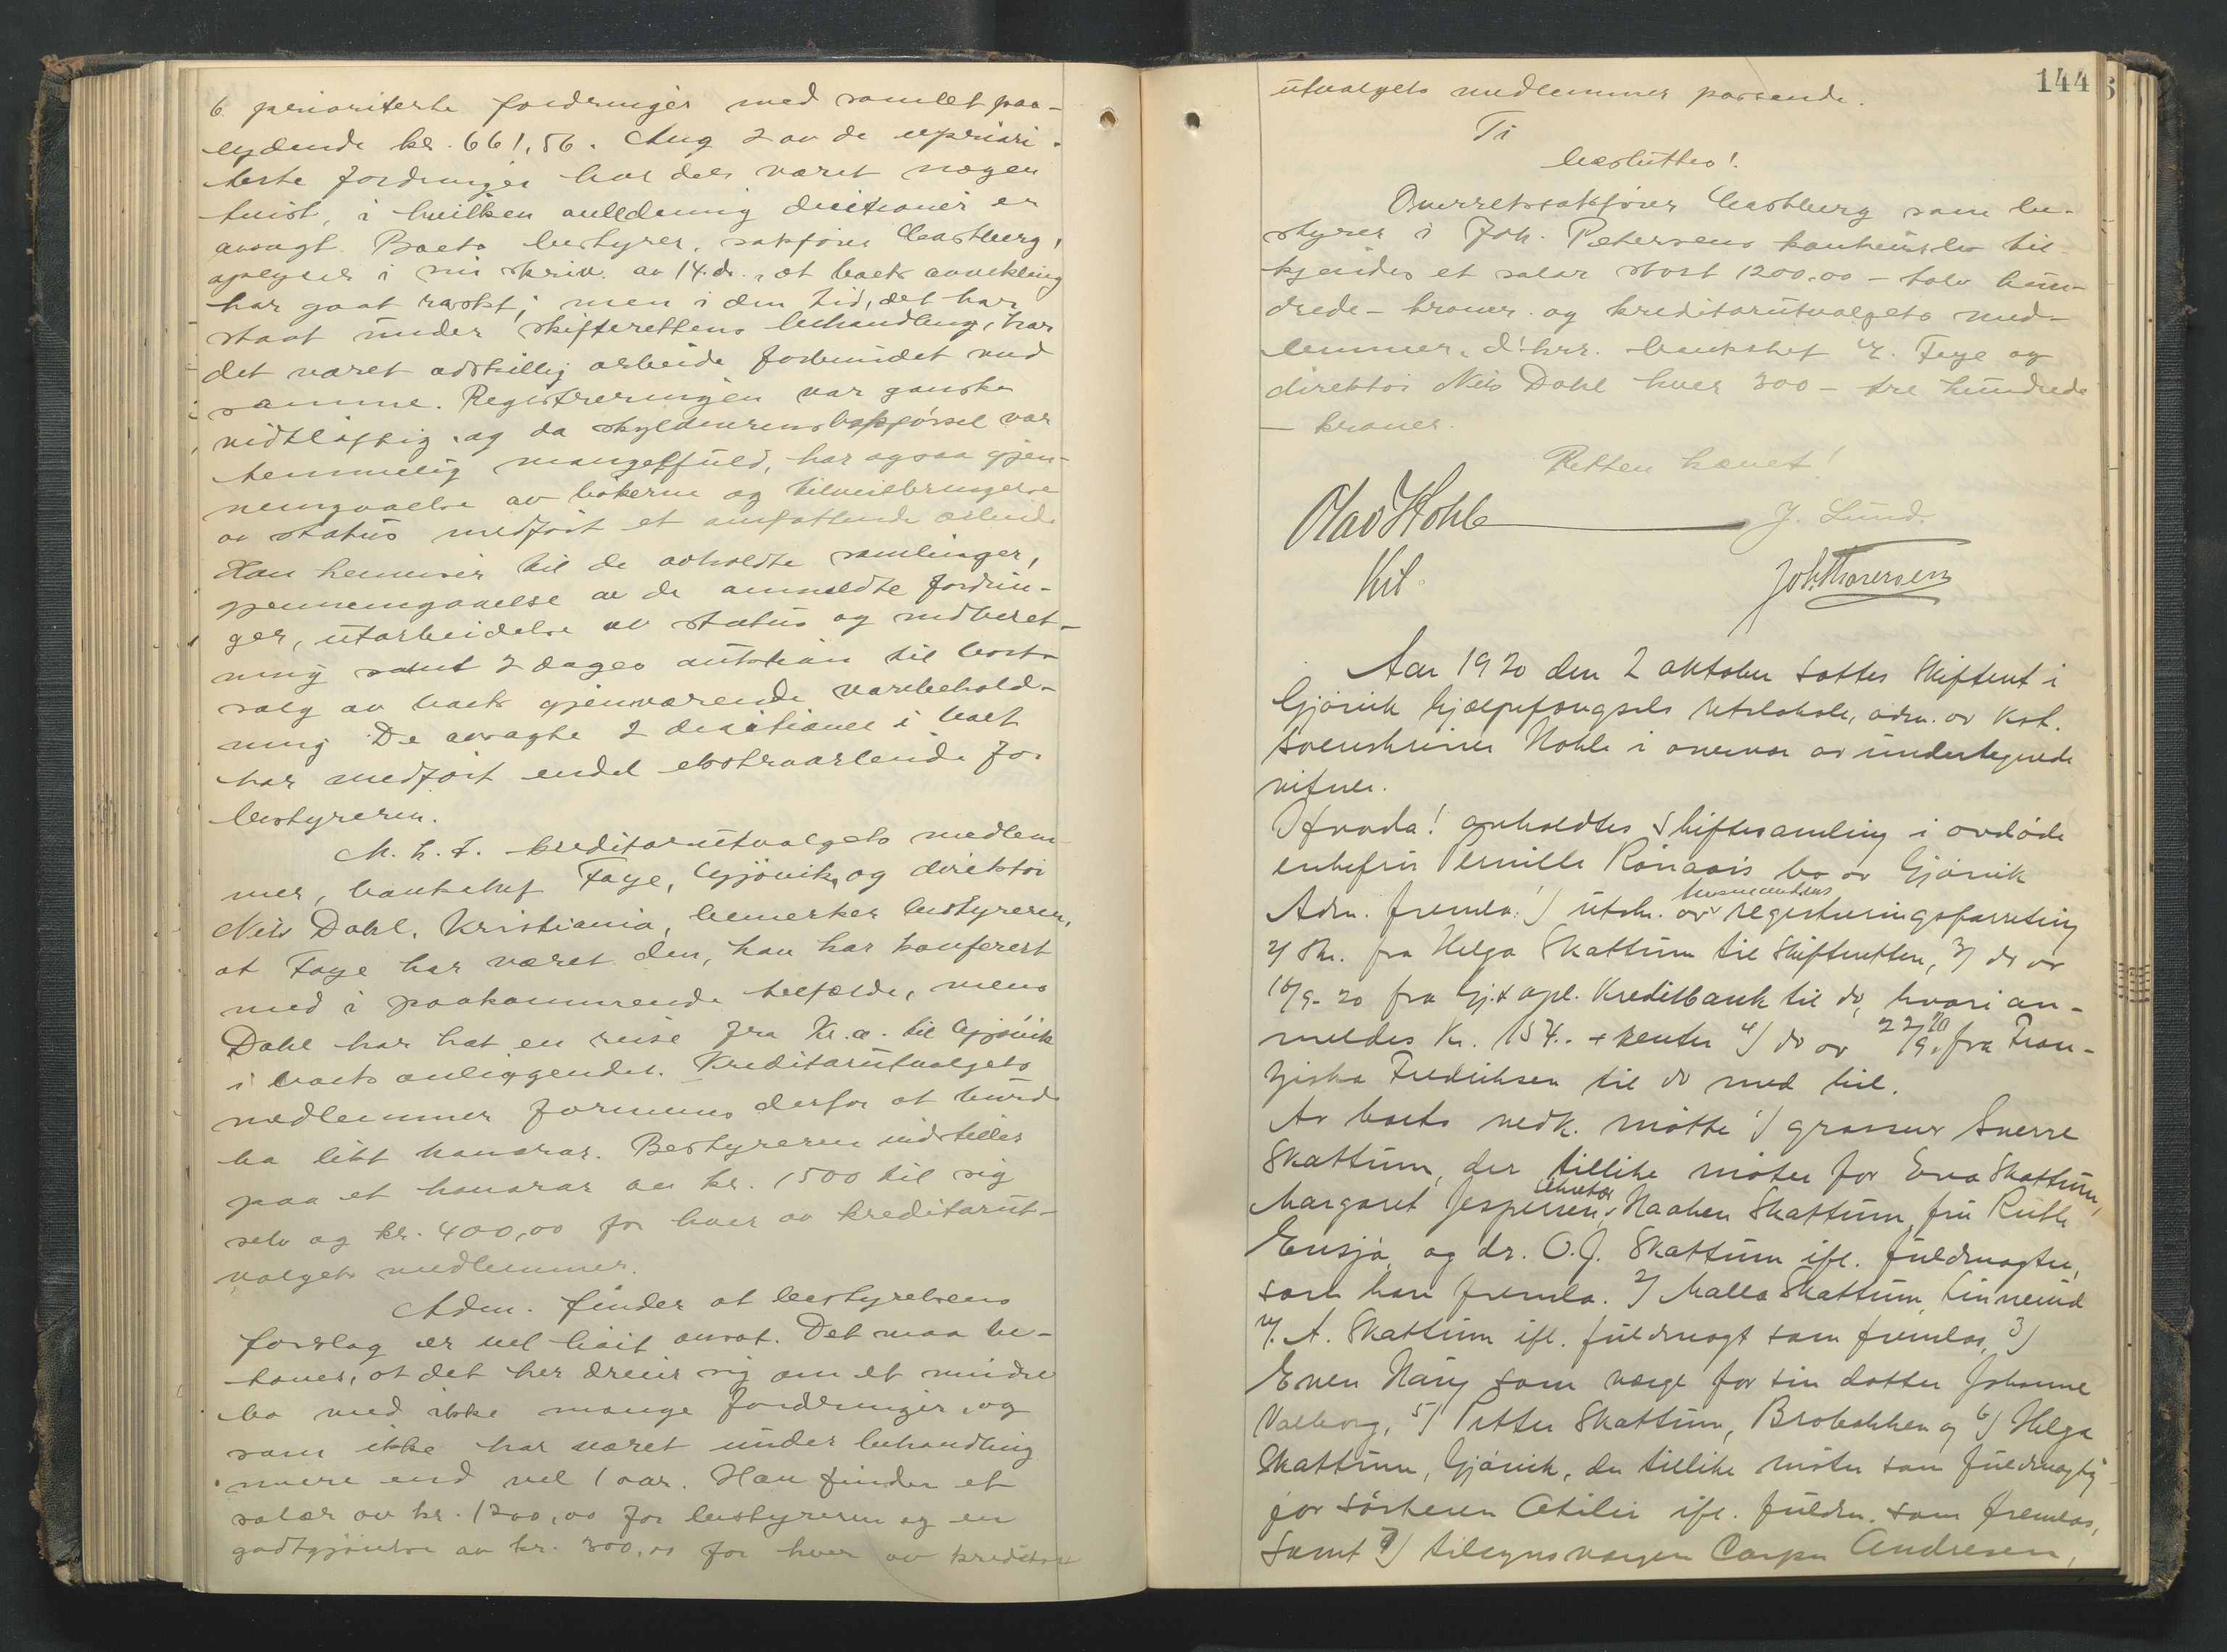 6 prioriterte fordringer med samlet paa-
lydende kr. 661,56. Ang 2 av de upriori-
terte fordringer har der været nogen
tvist, i hvilken anledning decisioner er
avsagt. Boets bestyrer, sakfører Castberg,
oplyser i sin skriv. av 14. ds., at boets avvikling
har gaat raskt; men i den tid, det har
staat under skifterettens behandling, har
det været adskillig arbeide forbundet med
samme. Registreringen var ganske
vidtløftig og da skyldnerens bokførsel var
temmelig mangelfuld, har ogsaa gjen-
nemgaaelse av bøkerne og tilveiebringelse
av status medført et omfattende arbeide
Han henviser til de avholdte samlinger,
gjennemgaaelse av de anmeldte fordrin-
ger, utarbeidelse av status og indberet-
ning samt 2 dages auktion til bort-
salg av boets gjenværende varebehold-
ning De avsagte 2 decisioner i boet
har medført endel ekstraarbeide for
bestyreren.
M. h. t. kreditorutvalgets medlem-
mer, bankchef Faye, Gjøvik, og direktør
Nils Dahl, Kristiania, bemerker bestyreren,
at Faye har været den, han har konferert
med i paakommende tilfælde, mens
Dahl har hat en reise fra Kr.a. til Gjøvik
i boets anliggender. Kreditorutvalgets
medlemmer formenes derfor at burde
ha litt honorar. Bestyreren indstiller
paa et honorar av kr. 1500 til sig
selv og kr. 400,00 for hver av kreditorut-
valgets medlemmer.
Adm. finder at bestyrelsens
forslag er vel høit ansat. Det maa be-
tones, at det her dreier sig om et mindre
bo med ikke mange fordringer, og
som ikke har været under behandling
mere end vel 1 aar. Han finder et
salær av kr. 1200,00 for bestyreren og en
godtgjørelse av kr. 300,00 for hver av kreditor
144
utvalgets medlemmer passende.
Ti
besluttes!
Overretssakfører Castberg som be-
styrer i Joh. Petersens konkursbo til-
kjendes et salær stort 1200,00 – tolv hun-
drede – kroner og kreditorutvalgets med-
lemmer, d'hrr. bankchef Faye og
direktør Nils Dahl hver 300 – tre hundrede
– kroner.
Retten hævet!
Olav Hohle J. Lund.
Kst. Joh Thoresen
Aar 1920 den 2 oktober sattes skifteret i
Gjøvik hjælpefængsels retslokale, adm. av kst.
sorenskriver Hohle i overvær av undertegnede
vitner.
Hvorda! avholdtes skiftesamling i avdøde
enkefru Pernille bo av Gjøvik
Adm. fremla: 1) utskr. av lensmandens registreringsforretning
2) Skr. fra Helga Skattum til skifteretten, 3) do av
10/9-20 fra Gj. & opl. Kreditbank til do, hvori an-
meldes Kr. 154.. + renter 4) do av 22/9 20 fra Fran-
ziska Fredriksen til do med bil.
Av boets vedk. møtte 1) grosserer Sverre
Skattum, der tillike møter for Eva Skattum,
Margaret Jespersen, Haaken Skattum, fru Ruth
Ensjø, og dr. O.J. Skattum ifl. fuldmagter,
som han fremla. 2) Malla Skattum,
A. Skattum ifl. fuldmagt som fremlas, 3)
Even Haug som værge for sin datter Johanne
Valborg, 5) Petter Skattum, Brobakken og 6) Helga
Skattum, Gjøvik, der tillike møter som fuldmægtig
for søsteren Otilie ifl. fuldm. som fremlas,
samt 7) tilsynsværgen Andresen,